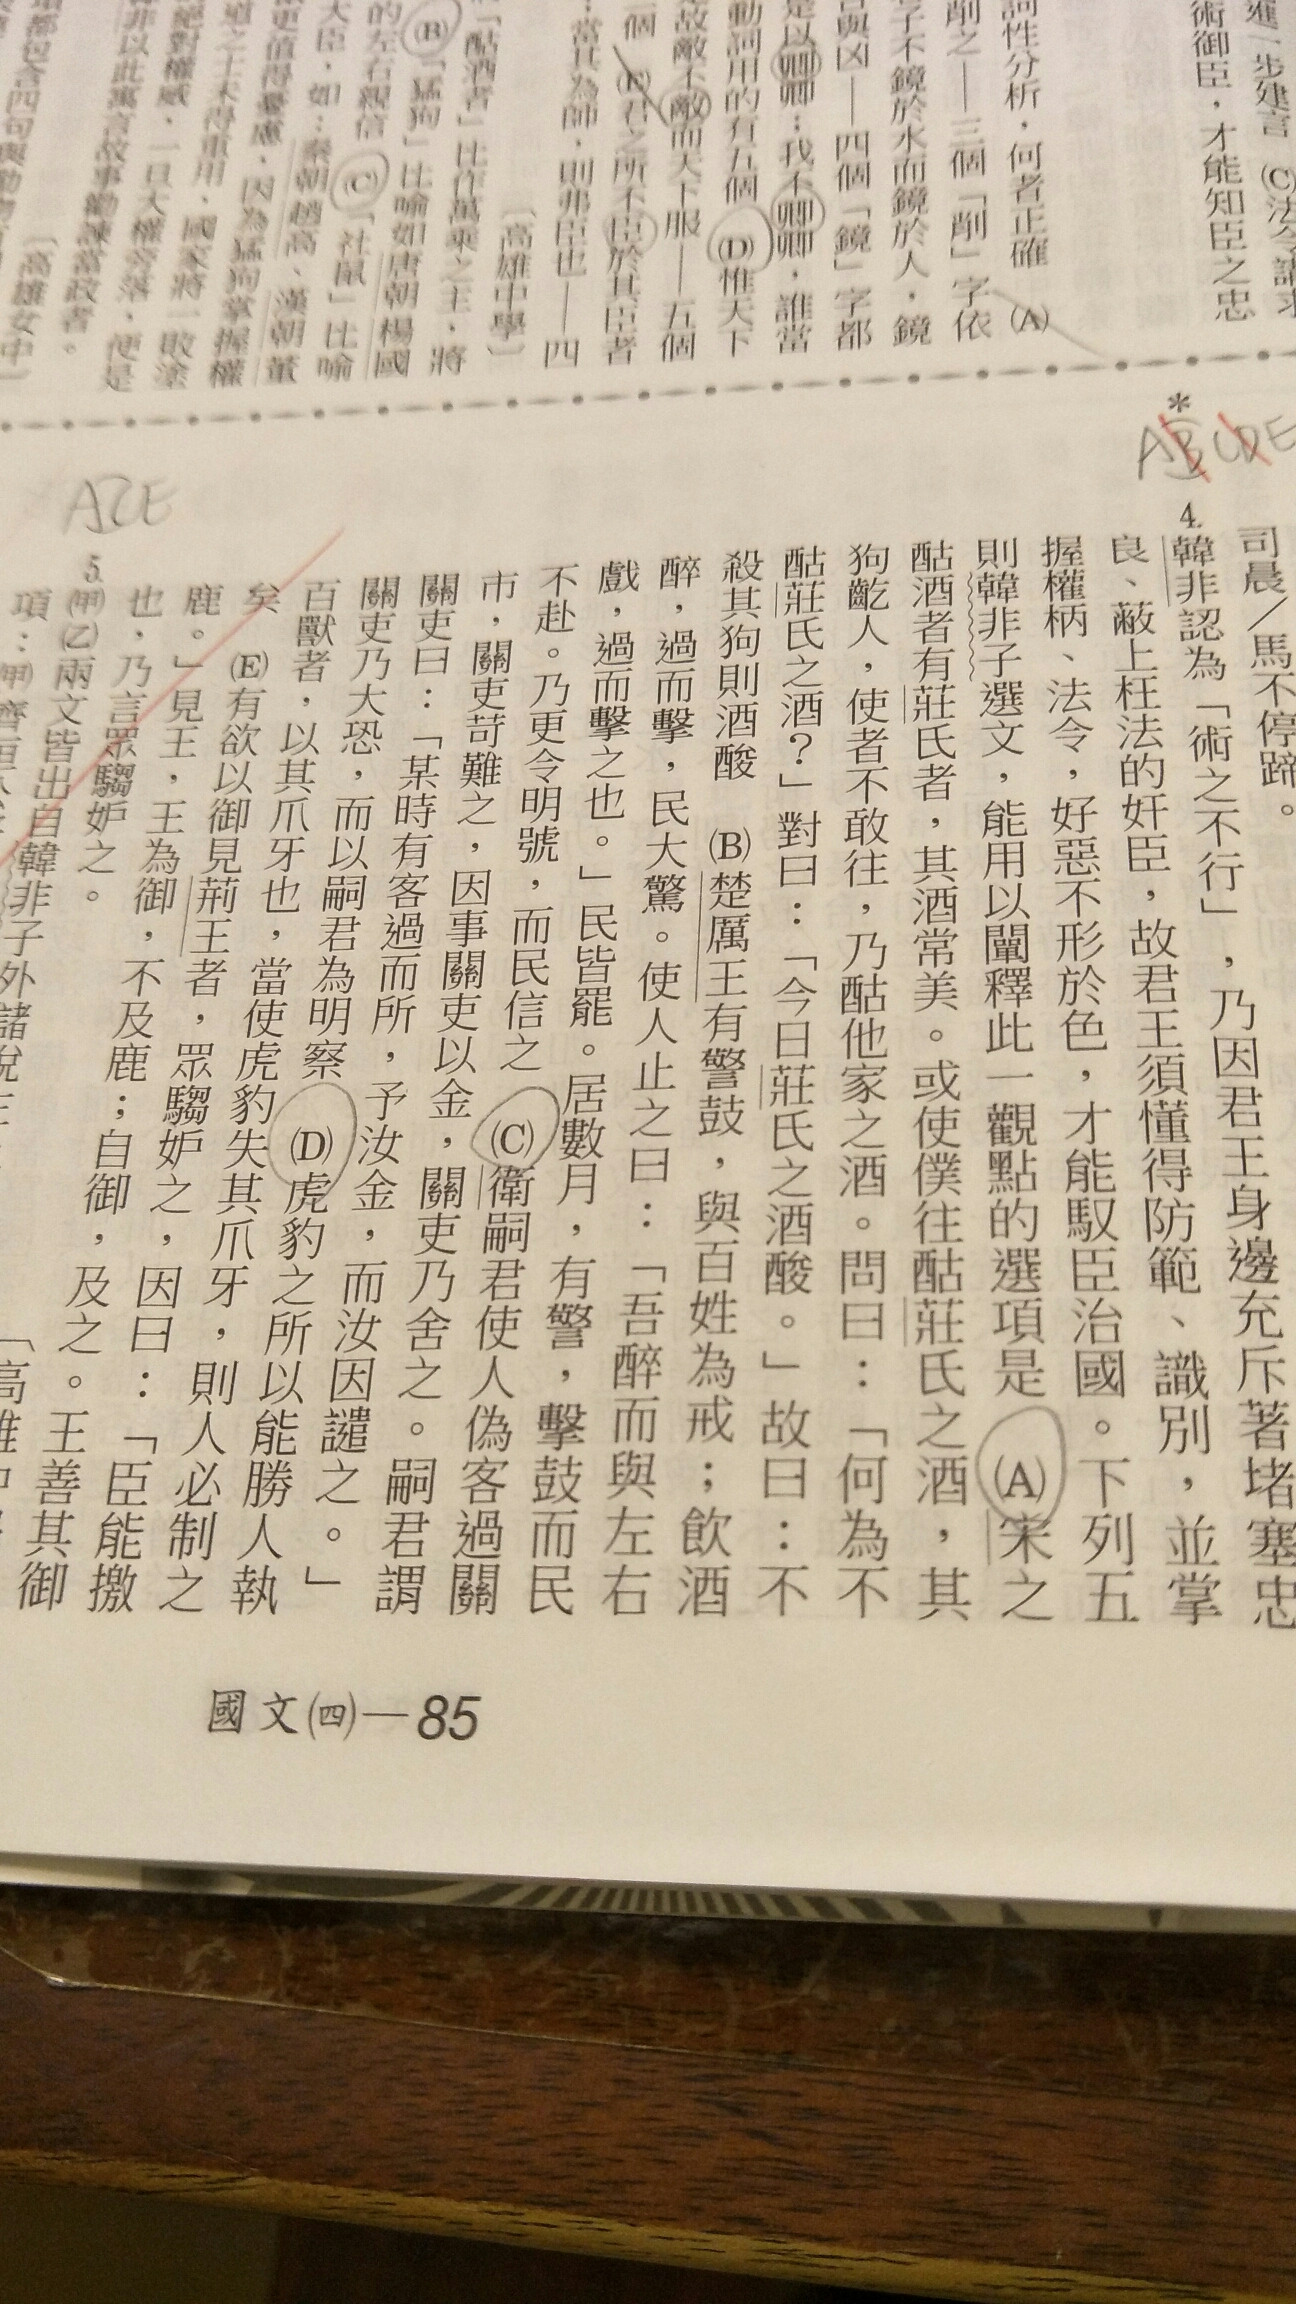 進一步建言　(C)法令講求
術御臣，才能知臣之忠
詞性分析，何者正確　(A)
削之——三個「削」字依
子不鏡於水而鏡於人，鏡
與凶——四個「鏡」字都
是以卿卿；我不卿卿，誰當
動詞用的有五個　(D)惟天下
故敵不敵而天下服——五個
個　(E)君之所不臣於其臣者
：當其為師，則弗臣也——四
〔高雄中學〕
「酤酒者」比作萬乘之主，將
(B)「猛狗」比喻如唐朝楊國
的左右親信　(C)「社鼠」比喻
大臣，如：秦朝趙高、漢朝董
更值得憂慮，因為猛狗掌握權
道之士未得重用，國家將一敗塗
絕對權威，一旦大權旁落，便是
非以此寓言故事勸諫當政者。
〔高雄女中〕
司晨／馬不停蹄。
*
ABCDE
4.
韓非認為「術之不行」，乃因君王身邊充斥著堵塞忠
良、蔽上枉法的奸臣，故君王須懂得防範、識別，並掌
握權柄、法令，好惡不形於色，才能馭臣治國。下列五
則韓非子選文，能用以闡釋此一觀點的選項是　(A)宋之
酤酒者有莊氏者，其酒常美。或使僕往酤莊氏之酒，其
狗齕人，使者不敢往，乃酤他家之酒。問曰：「何為不
酤莊氏之酒？」對曰：「今日莊氏之酒酸。」故曰：不
殺其狗則酒酸　(B)楚厲王有警鼓，與百姓為戒；飲酒
醉，過而擊，民大驚。使人止之曰：「吾醉而與左右
戲，過而擊之也。」民皆罷。居數月，有警，擊鼓而民
不赴。乃更令明號，而民信之　(C)衛嗣君使人偽客過關
市，關吏苛難之，因事關吏以金，關吏乃舍之。嗣君謂
關吏曰：「某時有客過而所，予汝金，而汝因譴之。」
關吏乃大恐，而以嗣君為明察　(D)虎豹之所以能勝人執
百獸者，以其爪牙也，當使虎豹失其爪牙，則人必制之
矣　(E)有欲以御見荊王者，眾騶妒之，因曰：「臣能撽
鹿。」見王，王為御，不及鹿；自御，及之。王善其御
也，乃言眾騶妒之。
ACE
5.
(甲)(乙)兩文皆出自韓非子外諸說
國文(四)—85